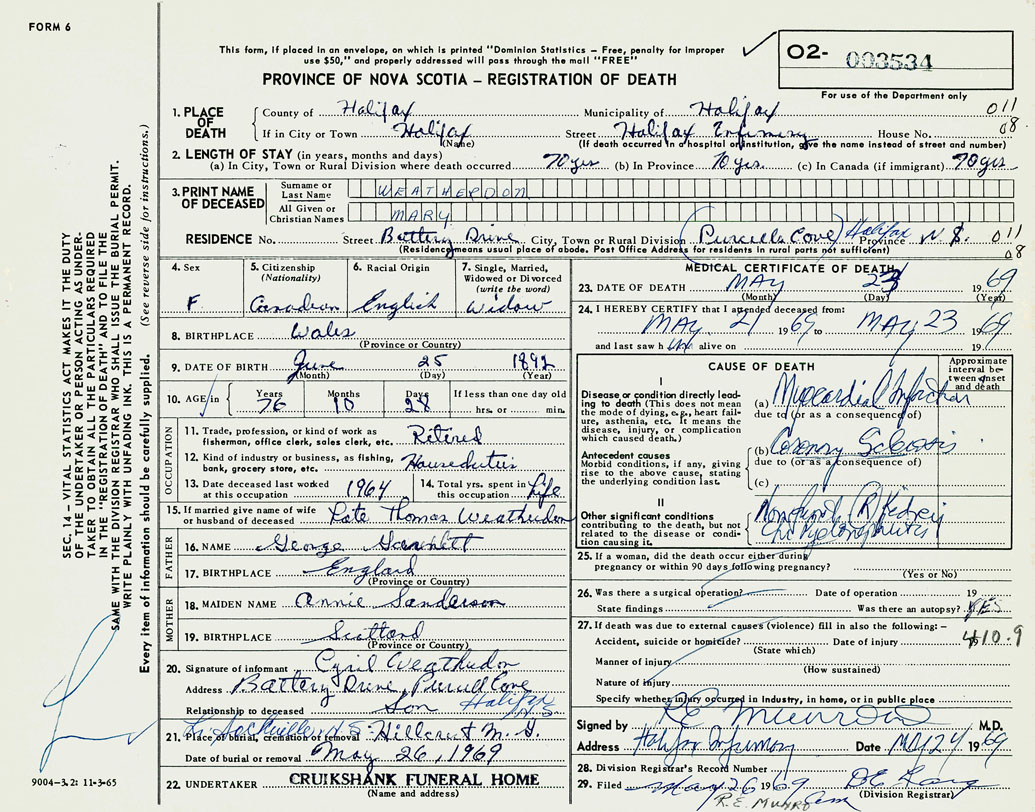 FORM 6
This form, if placed in an envelope, on which is printed "Dominion Statistics – Free, penalty for improper
use $50," and properly addressed will pass through the mail "FREE"
PROVINCE OF NOVA SCOTIA – REGISTRATION OF DEATH
02- 003534
For use of the Department only
1. PLACE OF DEATH
County of Halifax Municipality of Halifax 011
If in City or Town Halifax Street Halifax Infirmary House No. 08
(Name) (If death occurred in a hospital or institution, give the name instead of street and number)
2. LENGTH OF STAY (in years, months and days)
(a) In City, Town or Rural Division where death occurred 70 yrs (b) In Province 70 yrs. (c) In Canada (if immigrant) 70 yrs
3. PRINT NAME OF DECEASED
Surname or Last Name WEATHERDON
All Given or Christian Names MARY
RESIDENCE No. Street Battery Drive City, Town or Rural Division (Purcells Cove) Halifax Province N.S. 011
(Residency means usual place of abode. Post Office Address for residents in rural parts not sufficient) 08
4. Sex F
5. Citizenship (Nationality) Canadian
6. Racial Origin English
7. Single, Married, Widowed or Divorced (write the word) Widow
8. BIRTHPLACE Wales
(Province or Country)
9. DATE OF BIRTH June 25 1892
(Month) (Day) (Year)
10. AGE in Years 76 Months 10 Days 28 If less than one day old
hrs. or min.
OCCUPATION
11. Trade, profession, or kind of work as fisherman, office clerk, sales clerk, etc. Retired
12. Kind of industry or business, as fishing, bank, grocery store, etc. Houseduties
13. Date deceased last worked at this occupation 1964 14. Total yrs. spent in this occupation Life
15. If married give name of wife or husband of deceased Late Thomas Weatherdon
FATHER
16. NAME George
17. BIRTHPLACE England
(Province or Country)
MOTHER
18. MAIDEN NAME Annie Sanderson
19. BIRTHPLACE Scotland
(Province or Country)
20. Signature of informant Cyril Weatherdon
Address Battery Drive, Purcell Cove
Relationship to deceased Son Halifax N.S.
21. Place of burial, cremation or removal Lr. Sackville N.S. Hillcrest M. G.
Date of burial or removal May 26, 1969
22. UNDERTAKER CRUIKSHANK FUNERAL HOME
(Name and address)
MEDICAL CERTIFICATE OF DEATH
23. DATE OF DEATH MAY 23 1969
(Month) (Day) (Year)
24. I HEREBY CERTIFY that I attended deceased from:
MAY 21 1969 to MAY 23 1969
and last saw h alive on 19
CAUSE OF DEATH
Approximate interval between onset and death
I
Disease or condition directly leading to death (This does not mean the mode of dying, e.g., heart failure, asthenia, etc. It means the disease, injury, or complication which caused death.)
(a) Myocardial Infarction
due to (or as a consequence of)
Antecedent causes
Morbid conditions, if any, giving rise to the above cause, stating the underlying condition last.
(b) Coronary Sclerosis
due to (or as a consequence of)
(c)
II
Other significant conditions
contributing to the death, but not related to the disease or condition causing it.
Nonfunct (R) Kidney
Chr Pyelonephritis
25. If a woman, did the death occur either during pregnancy or within 90 days following pregnancy?
(Yes or No)
26. Was there a surgical operation? Date of operation 19
State findings Was there an autopsy? YES
27. If death was due to external causes (violence) fill in also the following: –
Accident, suicide or homicide? Date of injury 410.9
(State which)
Manner of injury
(How sustained)
Nature of injury
Specify whether injury occurred in Industry, in home, or in public place
Signed by R E Munro M.D.
Address Halifax Infirmary Date MAY 24 1969
28. Division Registrar's Record Number
29. Filed May 26 1969
(Division Registrar)
R.E. MUNRO
9004–3.2: 11-3-65
SEC. 14 – VITAL STATISTICS ACT MAKES IT THE DUTY
OF THE UNDERTAKER OR PERSON ACTING AS UNDER-
TAKER TO OBTAIN ALL THE PARTICULARS REQUIRED
IN THE "REGISTRATION OF DEATH" AND TO FILE THE
SAME WITH THE DIVISION REGISTRAR WHO SHALL ISSUE THE BURIAL PERMIT.
WRITE PLAINLY WITH UNFADING INK. THIS IS A PERMANENT RECORD.
Every item of information should be carefully supplied. (See reverse side for instructions.)